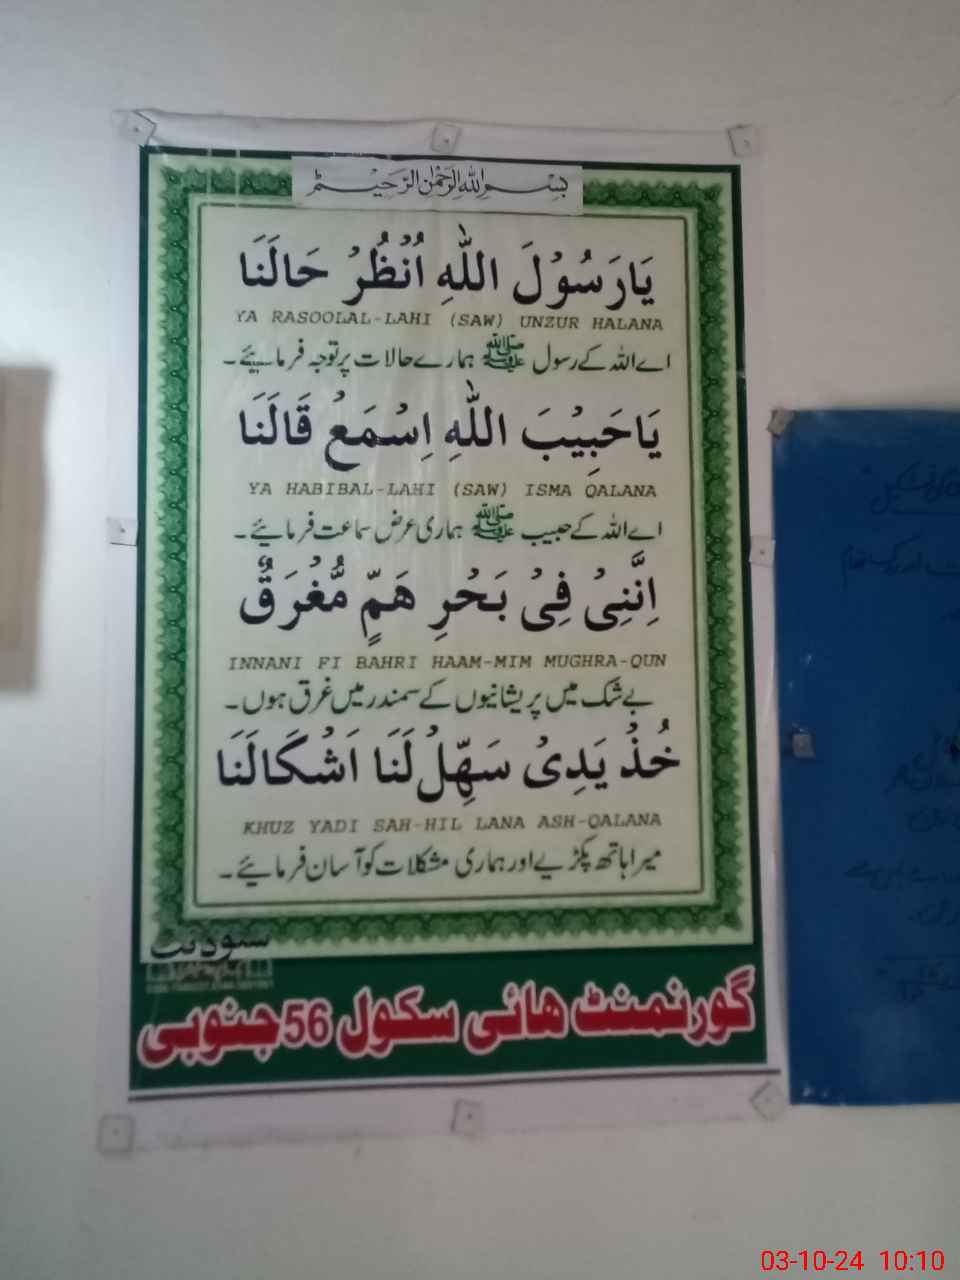 بِسْمِ اللهِ الرَّحْمٰنِ الرَّحِيْمِ
يَارَسُوْلَ اللّٰهِ اُنْظُرْ حَالَنَا
YA RASOOLAL-LAHI (SAW) UNZUR HALANA
اے اللہ کے رسول ﷺ ہمارے حالات پر توجہ فرمائیے۔
يَاحَبِيْبَ اللّٰهِ اِسْمَعْ قَالَنَا
YA HABIBAL-LAHI (SAW) ISMA QALANA
اے اللہ کے حبیب ﷺ ہماری عرض سماعت فرمائیے۔
اِنَّنِىْ فِىْ بَحْرِ هَمٍّ مُّغْرَقٌ
INNANI FI BAHRI HAAM-MIM MUGHRA-QUN
بے شک میں پریشانیوں کے سمندر میں غرق ہوں۔
خُذْ يَدِىْ سَهِّلْ لَنَا اَشْكَالَنَا
KHUZ YADI SAH-HIL LANA ASH-QALANA
میرا ہاتھ پکڑیے اور ہماری مشکلات کو آسان فرمائیے۔
سٹوڈنٹ
گورنمنٹ ھائی سکول 56 جنوبی
03-10-24 10:10